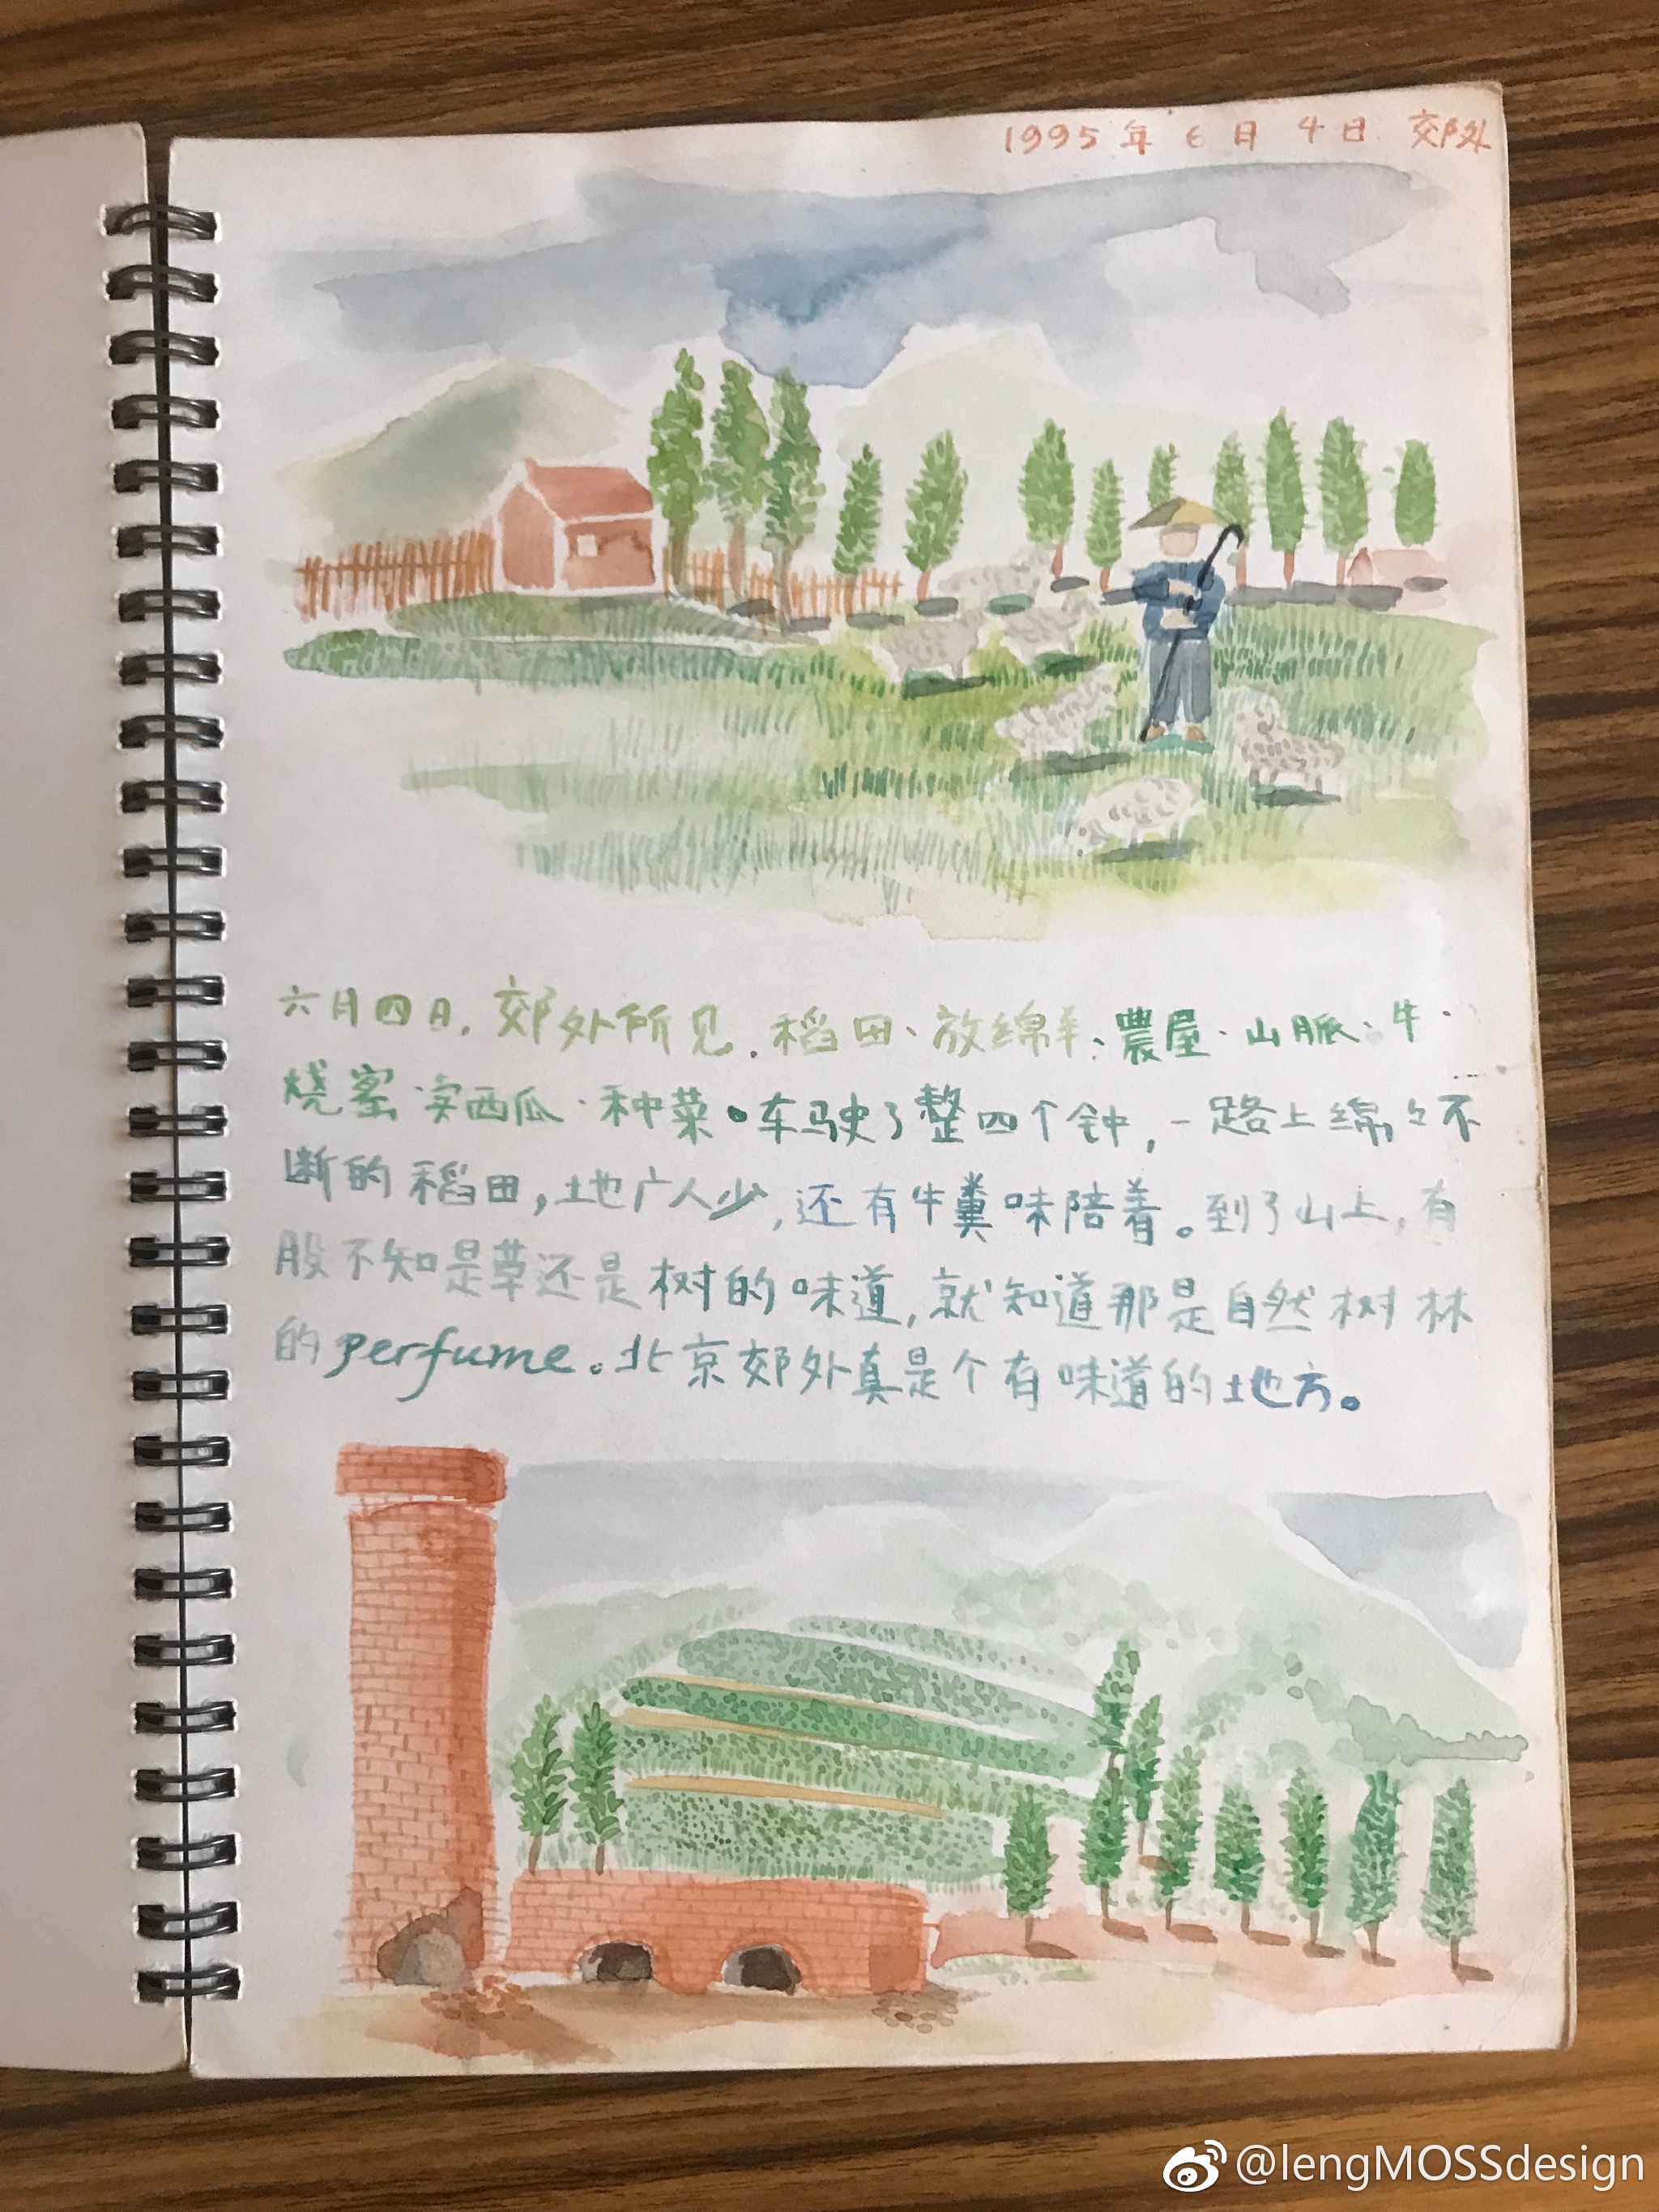 1995年6月4日 郊外
六月四日，郊外所见．稻田、放绵羊、農屋·山脈、牛·
烧窑·卖西瓜·种菜。车驶了整四个钟，一路上绵々不
断的稻田，土地广人少，还有牛糞味陪着。到了山上，有
股不知是草还是树的味道，就知道那是自然树林
的perfume。北京郊外真是个有味道的土地方。
@lengMOSSdesign